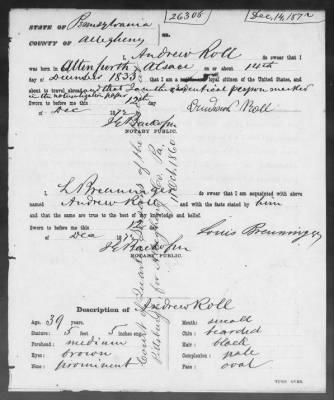 STATE OF Pennsylvania
COUNTY OF Allegheny
ss.
26306
Dec, 14, 1872
I, Andrew Roll do swear that I
was born in Altenforth Alsace on or about 14th
day of December 1833; that I am a loyal citizen of the United States, and
about to travel abroad, and that I am the identical person named
in the naturalization paper
Sworn to me before this 12th
day of Dec 1872
NOTARY PUBLIC.
Andreas Roll
I, L Brenninger do swear that I am acquainted with above
named Andrew Roll and with the facts stated by him
and that the same are true to the best of my knowledge and belief.
Sworn to before me this 12
day of Dec 1872
Louis Brenninger
NOTARY PUBLIC.
Court of Quarter Sessions of the
Pittsburgh for Allegheny Co. Pa.
1860
Description of Andrew Roll
Age: 39 years.
Stature: 5 feet 5 inches eng.
Forehead: medium
Eyes: brown
Nose: prominent
Mouth: small
Chin: bearded
Hair: black
Complexion: pale
Face: oval
TURN OVER.